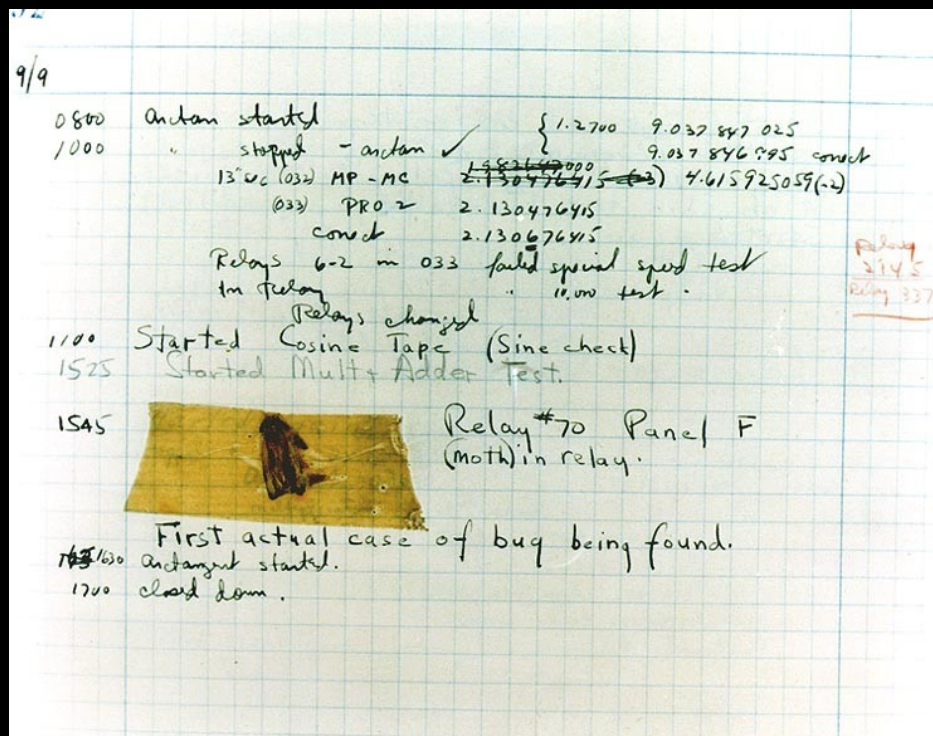 9/9
0800 Antan started
1000 " stopped - antan ✓ { 1.2700 9.037 847 025
9.037 846 995 correct
13" uc (032) MP - MC 2.130476415 (-3) 4.615925059(-2)
(033) PRO 2 2.130476415
correct 2.130676415
Relays 6-2 in 033 failed special speed test
In Relay " 10,000 test .
Relays changed
1100 Started Cosine Tape (Sine check)
1525 Started Mult + Adder Test.
1545 Relay #70 Panel F
(moth) in relay.
First actual case of bug being found.
1630 Antangent started.
1700 closed down.
Relay
2145
Relay 337